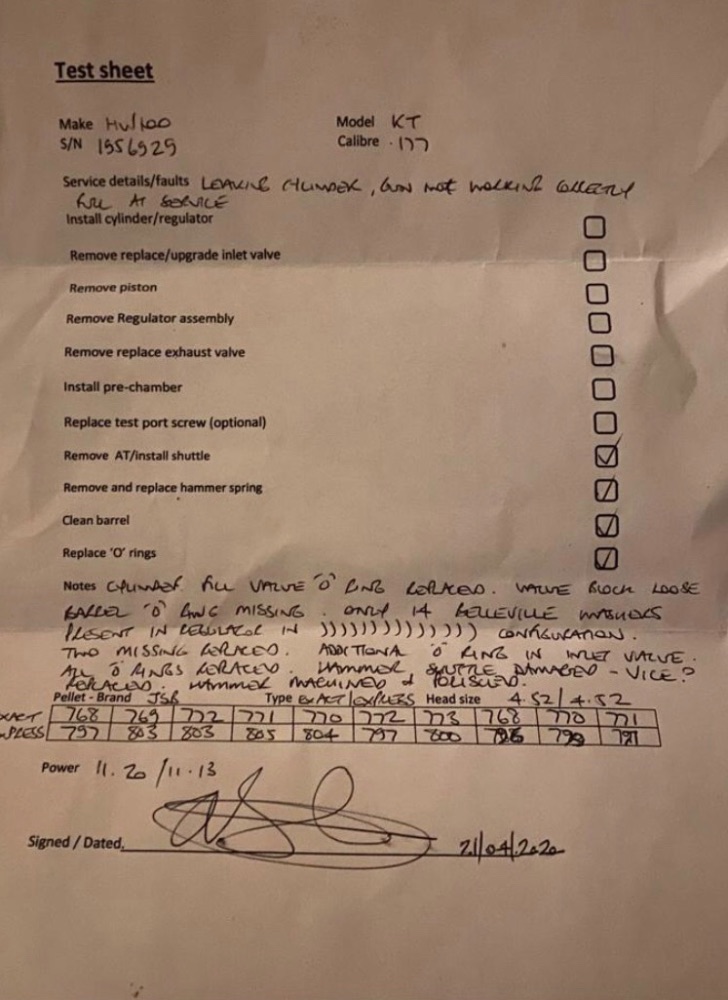 Test sheet
Make HW100 Model KT
S/N 1956929 Calibre .177
Service details/faults LEAKING CYLINDER, GUN NOT WORKING CORRECTLY
FULL AT SERVICE
Install cylinder/regulator
Remove replace/upgrade inlet valve
Remove piston
Remove Regulator assembly
Remove replace exhaust valve
Install pre-chamber
Replace test port screw (optional)
Remove AT/install shuttle
Remove and replace hammer spring
Clean barrel
Replace 'O' rings
Notes CYLINDER FILL VALVE 'O' RING REPLACED. VALVE BLOCK LOOSE
BARREL 'O' RING MISSING. ONLY 14 BELLEVILLE WASHERS
PRESENT IN REGULATOR IN )))))))))))))) CONFIGURATION.
TWO MISSING REPLACED. ADDITIONAL 'O' RING IN INLET VALVE.
ALL 'O' RINGS REPLACED. HAMMER, SHUTTLE DAMAGED - VICE?
REPLACED. HAMMER MACHINED & POLISHED.
Pellet - Brand JSB Type EXACT/EXPRESS Head size 4.52/4.52
EXACT 768 769 772 771 770 772 773 768 770 771
797 803 803 805 804 797 800 796 799
Power 11.20/11.13
Signed / Dated. 21/04/2020